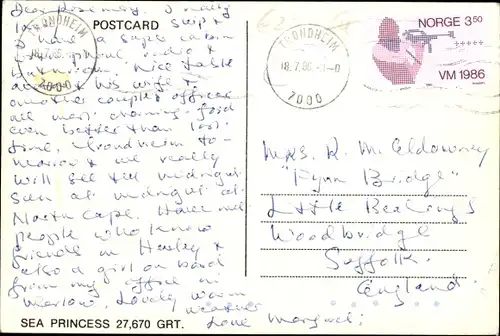 POSTCARD
Dear Rosemary. I really
ship &
I have a super cabin
telephone, radio &
bathroom. Nice table
& his wife &
another couple & officer
all very charming. Food
even better than last
time. Trondheim to-
morrow & we really
will see the midnight
sun at midnight at
North Cape. Have met
people who know
friends in Henley &
also a girl on board
from my office in
Marlow. Lovely warm
weather
Love Margaret
SEA PRINCESS 27,670 GRT.
TRONDHEIM
18.7.86
7000
TRONDHEIM
18.7.86
7000
NORGE 3.50
VM 1986
Mrs. R. McEldowney
"Fynn Bridge"
Little Bealings
Woodbridge
Suffolk.
England.